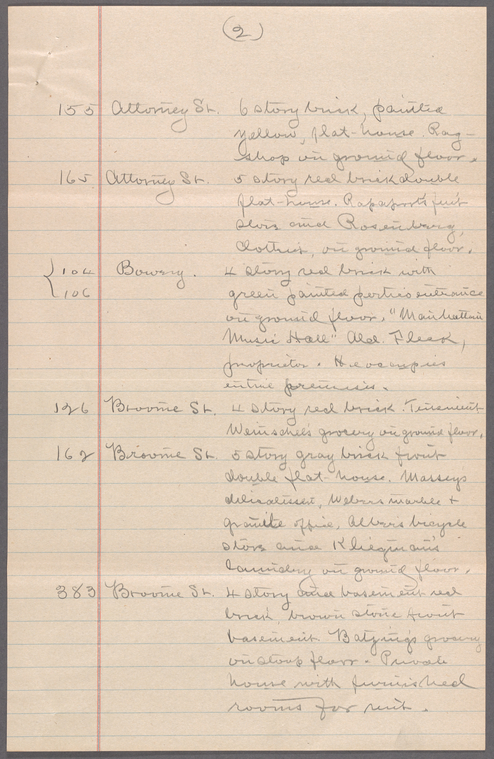 (2)
155 Attorney St. 6 story brick, painted
yellow, flat-house. Rag-
shop on ground floor.
165 Attorney St. 5 story red brick double
flat-house. Rapaport's fruit
store and Rosenberg,
clothier, on ground floor.
104 Bowery. 4 story red brick with
106 green painted portico entrance
on ground floor. "Manhattan
Music Hall" Ald. Fleck,
proprietor. He occupies
entire premises.
126 Broome St. 4 story red brick. Tenement
grocery on ground floor.
162 Broome St. 5 story gray brick front
double flat-house. Massey's
delicatessen, Webers marble +
granite office, Albers bicycle
store and Kliegman's
laundry on ground floor.
383 Broome St. 4 story and basement red
brick, brown stone front
basement. grocery
on stoop floor. Private
house with furnished
rooms for rent.